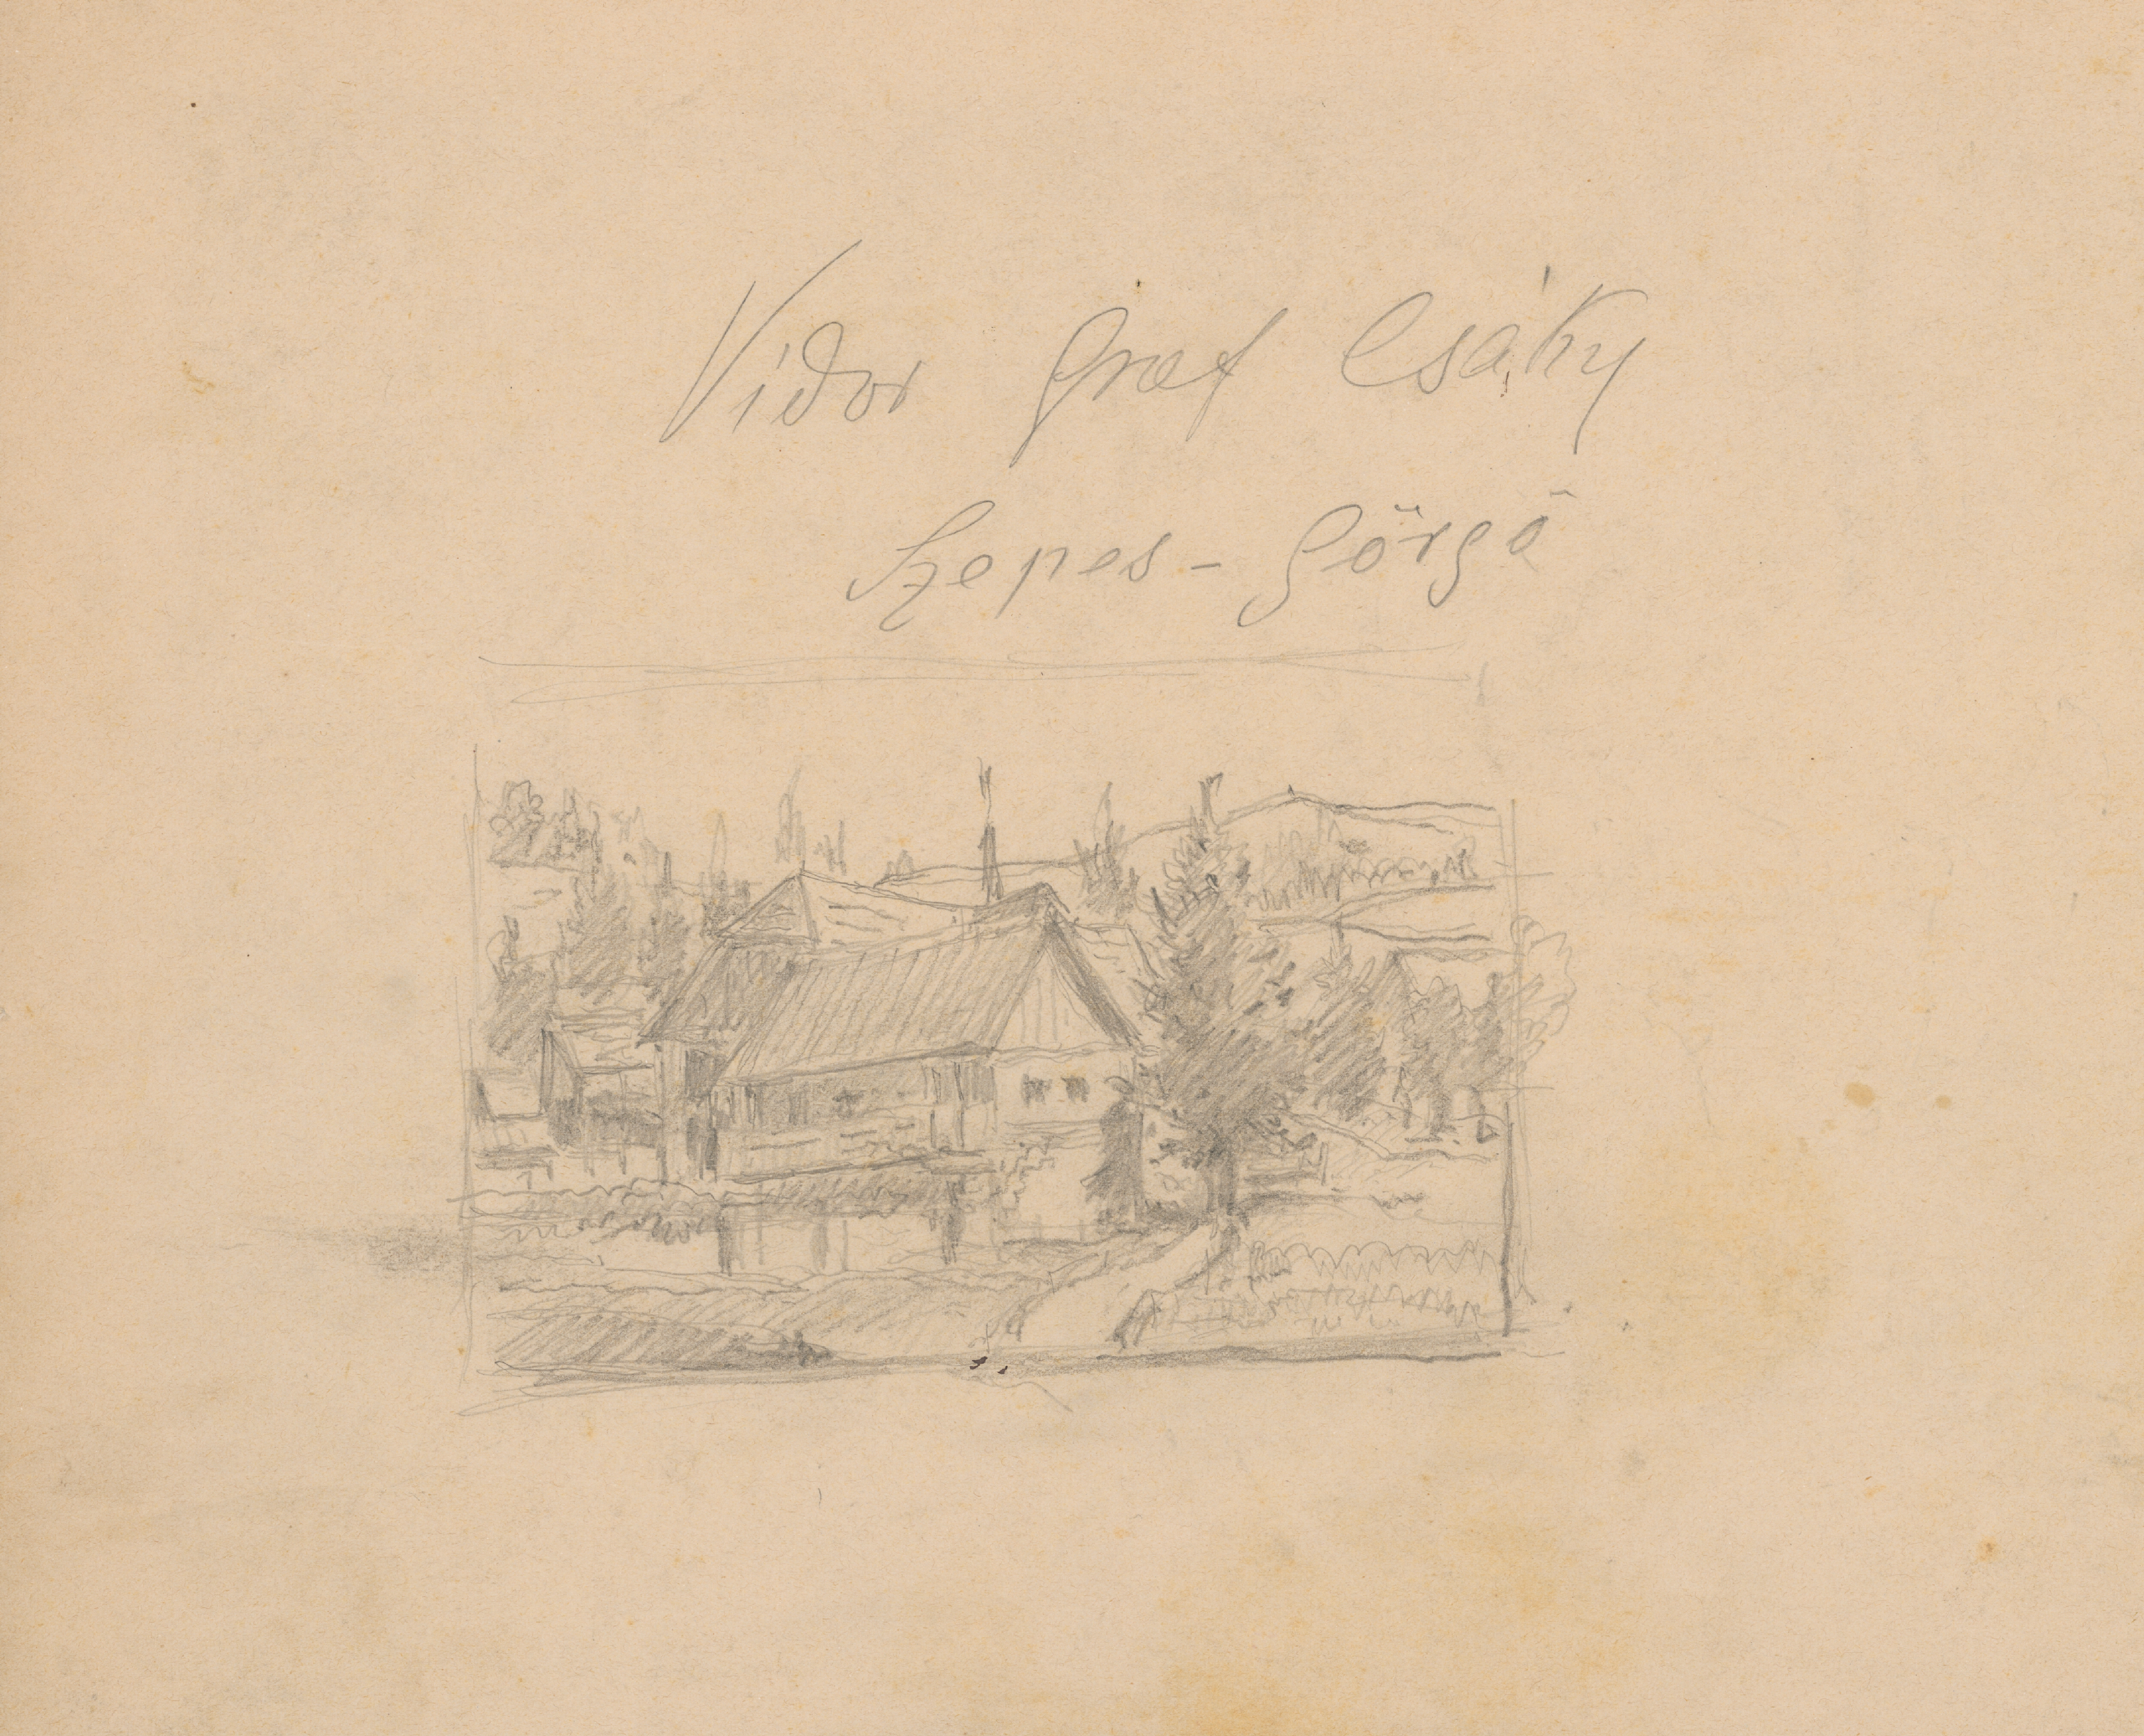 Vidor Graf Csáky
Szepes-Görgö